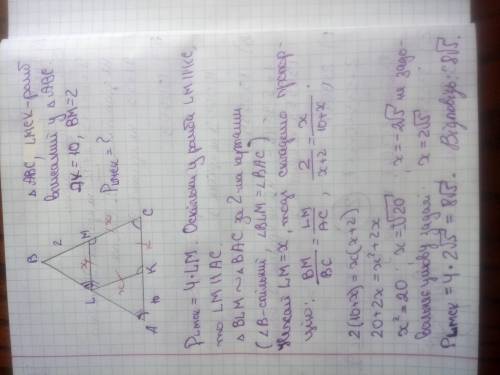 △ABC, LMCK-ромб
вписаний у △ABC
AK=10, BM=2
Pлмск = ?
B
2
L
M
x
x
x
x
A
10
K
C
Pлмск = 4·LM. Оскільки у ромба LM||KC,
то LM||AC
△BLM ~ △BAC за 2-ма кутами
(∠B-спільний ∠BLM=∠BAC)
Нехай LM=x, тоді складемо пропор-
цію: BM/BC = LM/AC, 2/(x+2) = x/(10+x),
2(10+x)=x(x+2)
20+2x=x²+2x
x²=20 x=±√20, x=-2√5 не задо-
вольняє умову задачі x=2√5
Pлмск = 4·2√5=8√5. Відповідь: 8√5.